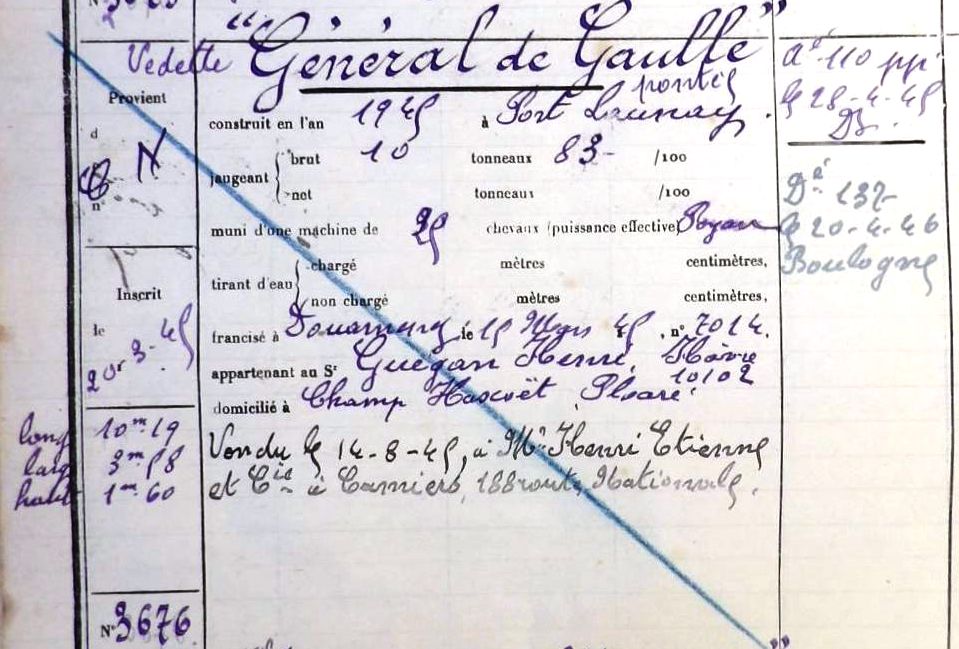 Vedette "Général de Gaulle"
ponté
Provient
d
N
n°
construit en l'an 1945 à Port Launay.
jaugeant brut 10 tonneaux 83 - /100
net tonneaux /100
muni d'une machine de 25 chevaux (puissance effective)
tirant d'eau chargé mètres centimètres,
non chargé mètres centimètres,
Inscrit
le
20-3-45
francisé à Douarnenez, le 15 Mars 45, n° 7014.
appartenant au Sr Guégan Henri, Hàvre
10102
domicilié à Champ Hascoët Ploaré
long 10m 19
larg 3m 58
haut 1m 60
Vendu le 14-8-45, à Mr Henri Etienne
et Cie à Camiers, 188 route Nationale.
N° 3676
Aé 110 ppi
le 28-4-45
Dé 137
le 20-4-46
Boulogne